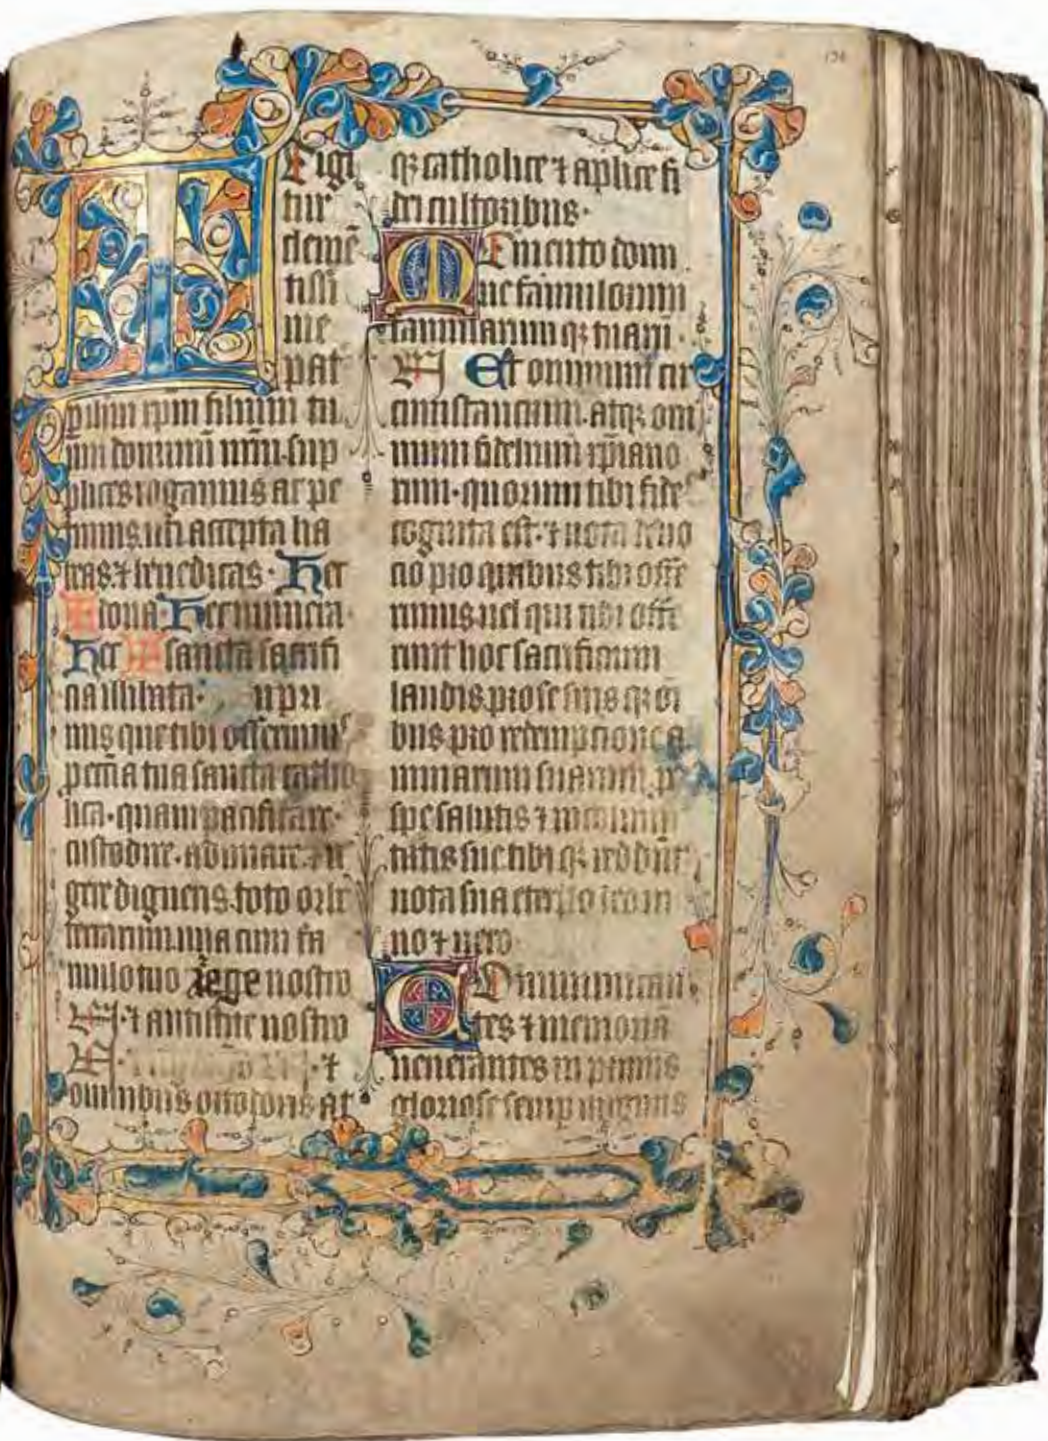 TEigi
tur
clemē
tissi
me
pat
p ihm xpm filium tu
um dominū nrm. sup
plices rogamus ac pe
timus. uti accepta ha
beas. ⁊ benedicas. Hec
✠ dona. Hec munera.
Hec ✠ sancta sacrifi
cia illibata. n pri
mis que tibi offerimus
p eccīa tua sancta catho
lica. quam pacificare.
custodire. adunare. ⁊ re
gere digneris. toto orbe
terrarum. una cum fa
mulo tuo rege nostro
N. ⁊ antistite nostro
N. ⁊
omnibus ortodoxis at
qꝫ catholice ⁊ aplice fi
dei cultoribus.
MEmento domi
ne famulorum
famularum qꝫ tuarū.
N Et omnium cir
cumstancium. atqꝫ om
nium fidelium xpiano
rum. quorum tibi fides
cognita est. ⁊ nota deuo
cio pro quibus tibi offe
rimus. uel qui tibi offe
runt hoc sacrificium
laudis. pro se suis qꝫ oī
bus. pro redempcione a
nimarum suarum. p
spe salutis ⁊ incolumi
tatis sue tibi qꝫ reddūt
uota sua eterno deo ui
uo ⁊ uero.
COmmunican
tes ⁊ memoriā
uenerantes in primis
gloriose semp uirginis